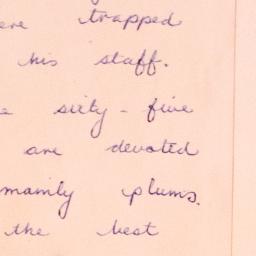 ere trapped
his staff.
e sixty-five
are devoted
mainly plums.
the best